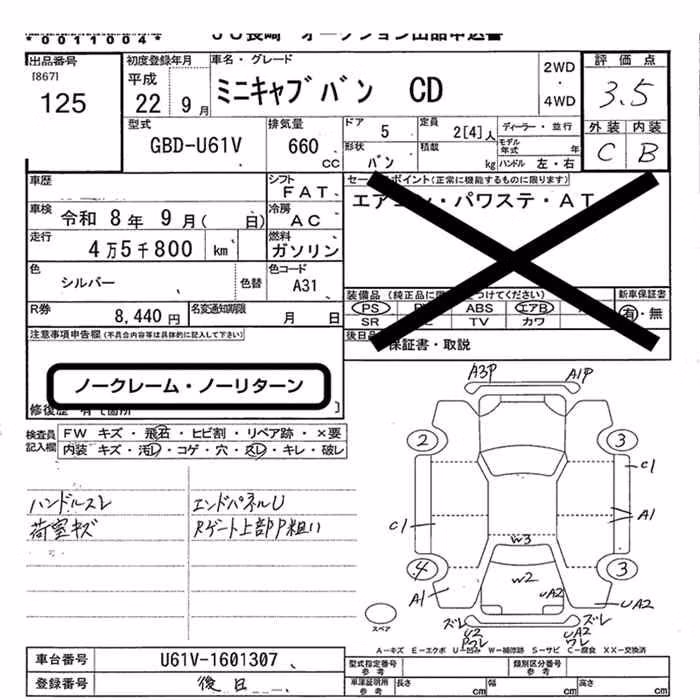 *0011004*
JU長崎 オークション出品申込書
出品番号 [867] 125
初度登録年月 平成 22年 9月
車名・グレード ミニキャブバン CD
2WD・4WD
評価点 3.5
外装 C 内装 B
型式 GBD-U61V
排気量 660 CC
ドア 5 定員 2[4]人 ディーラー・並行
形状 バン 積載 kg モデル年式 年 ハンドル 左・右
車歴
シフト FAT
車検 令和 8年 9月( 日)
冷房 AC
走行 4万5千800 km
燃料 ガソリン
色 シルバー 色替
色コード A31
R券 8,440円
名変通知期限 月 日
セールスポイント(正常に機能するものに限ります)
エアコン・パワステ・AT
装備品 新車保証書
PS ABS エアB 有・無
SR TV カワ
後日品 保証書・取説
注意事項申告欄(不具合内容等は具体的に記入して下さい)
ノークレーム・ノーリターン
修復歴
検査員記入欄
FW キズ・飛石・ヒビ割・リペア跡・×要
内装 キズ・汚レ・コゲ・穴・スレ・キレ・破レ
ハンドルスレ エンドパネルU
荷室キズ Rゲート上部P粗い
A3P A1P
2 3
C1
C1 A1
W3
4 W2 3
A1 UA2 UA2
ズレ ズレ
U2 UA2
Pワレ ワレ
スペア
A-キズ E-エクボ U-凹み W-補修跡 S-サビ C-腐食 XX-交換済
車台番号 U61V-1601307
登録番号 後日
型式指定番号 参考 類別区分番号 参考
車庫証明用 参考 長さ cm 幅 cm 高さ cm